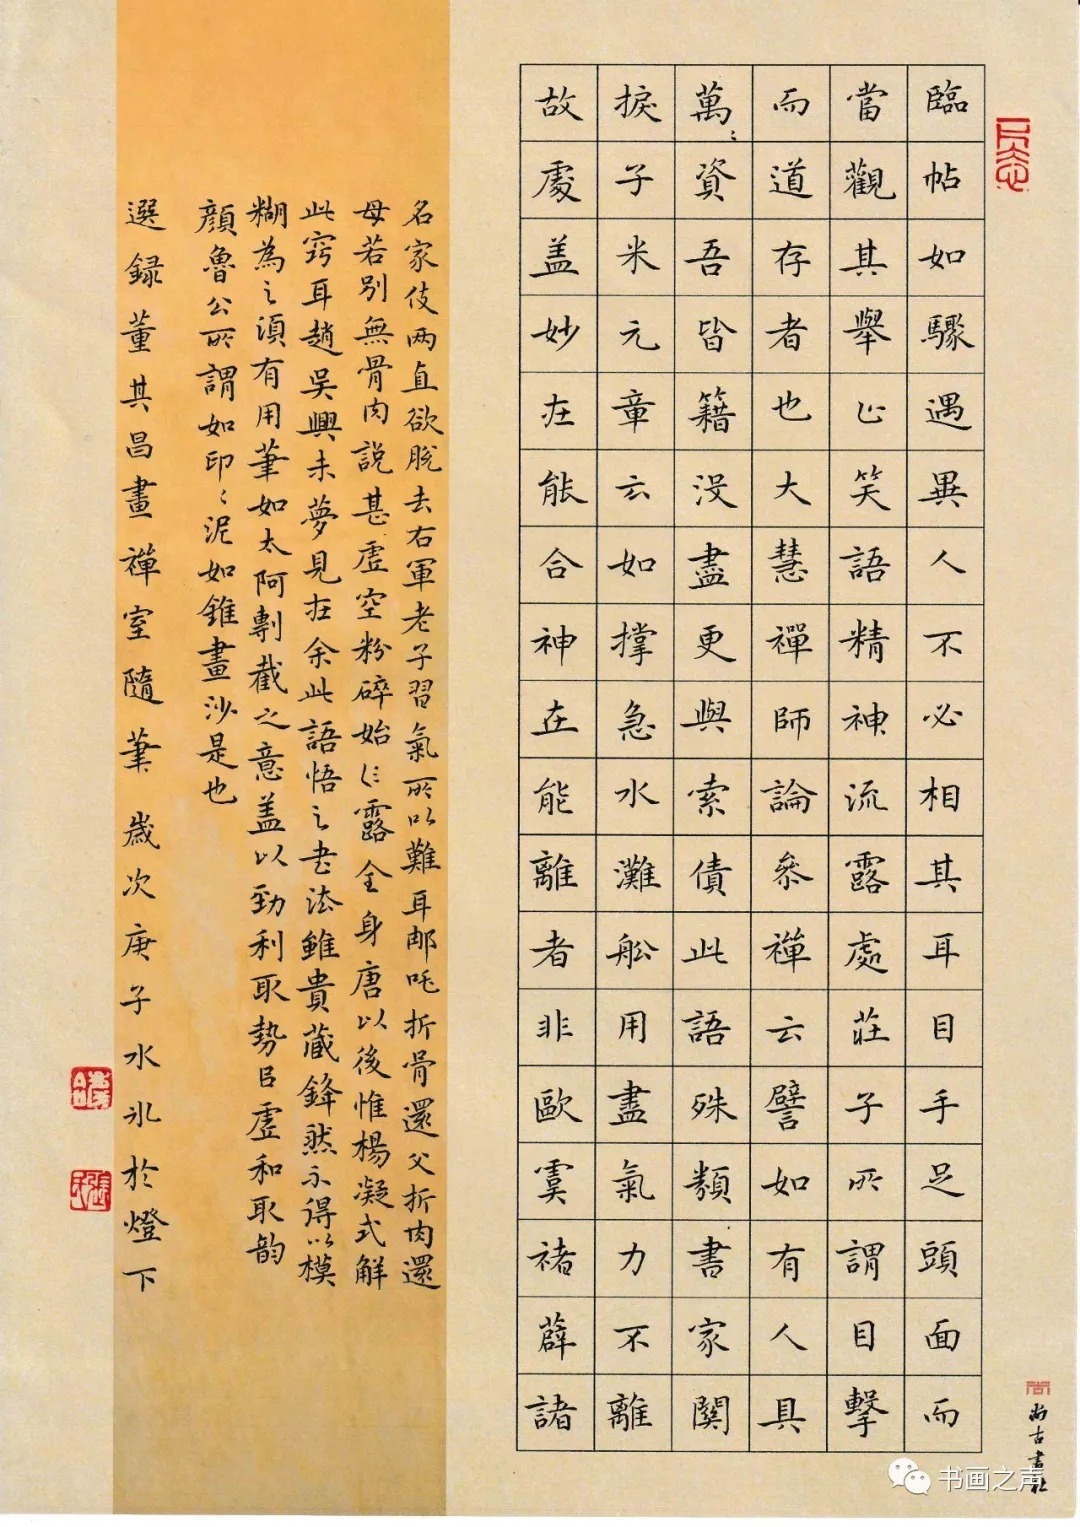 臨帖如驟遇異人不必相其耳目手足頭面而
當觀其舉止笑語精神流露處莊子所謂目擊
而道存者也大慧禪師論參禪云譬如有人具
萬〻資吾皆籍沒盡更與索債此語殊類書家關
捩子米元章云如撐急水灘船用盡氣力不離
故處盖妙在能合神在能離者非歐虞褚薛諸
名家伎兩直欲脫去右軍老子習氣所以難耳那吒折骨還父折肉還
母若別無骨肉說甚虛空粉碎始〻露全身唐以後惟楊凝式解
此竅耳趙吳興未夢見在余此語悟之書法雖貴藏鋒然不得以模
糊為之須有用筆如太阿剸截之意盖以勁利取勢以虛和取韵
顏魯公所謂如印〻泥如錐畫沙是也
選録董其昌畫禪室隨筆 歲次庚子水冰於燈下
尚古書社
书画之声